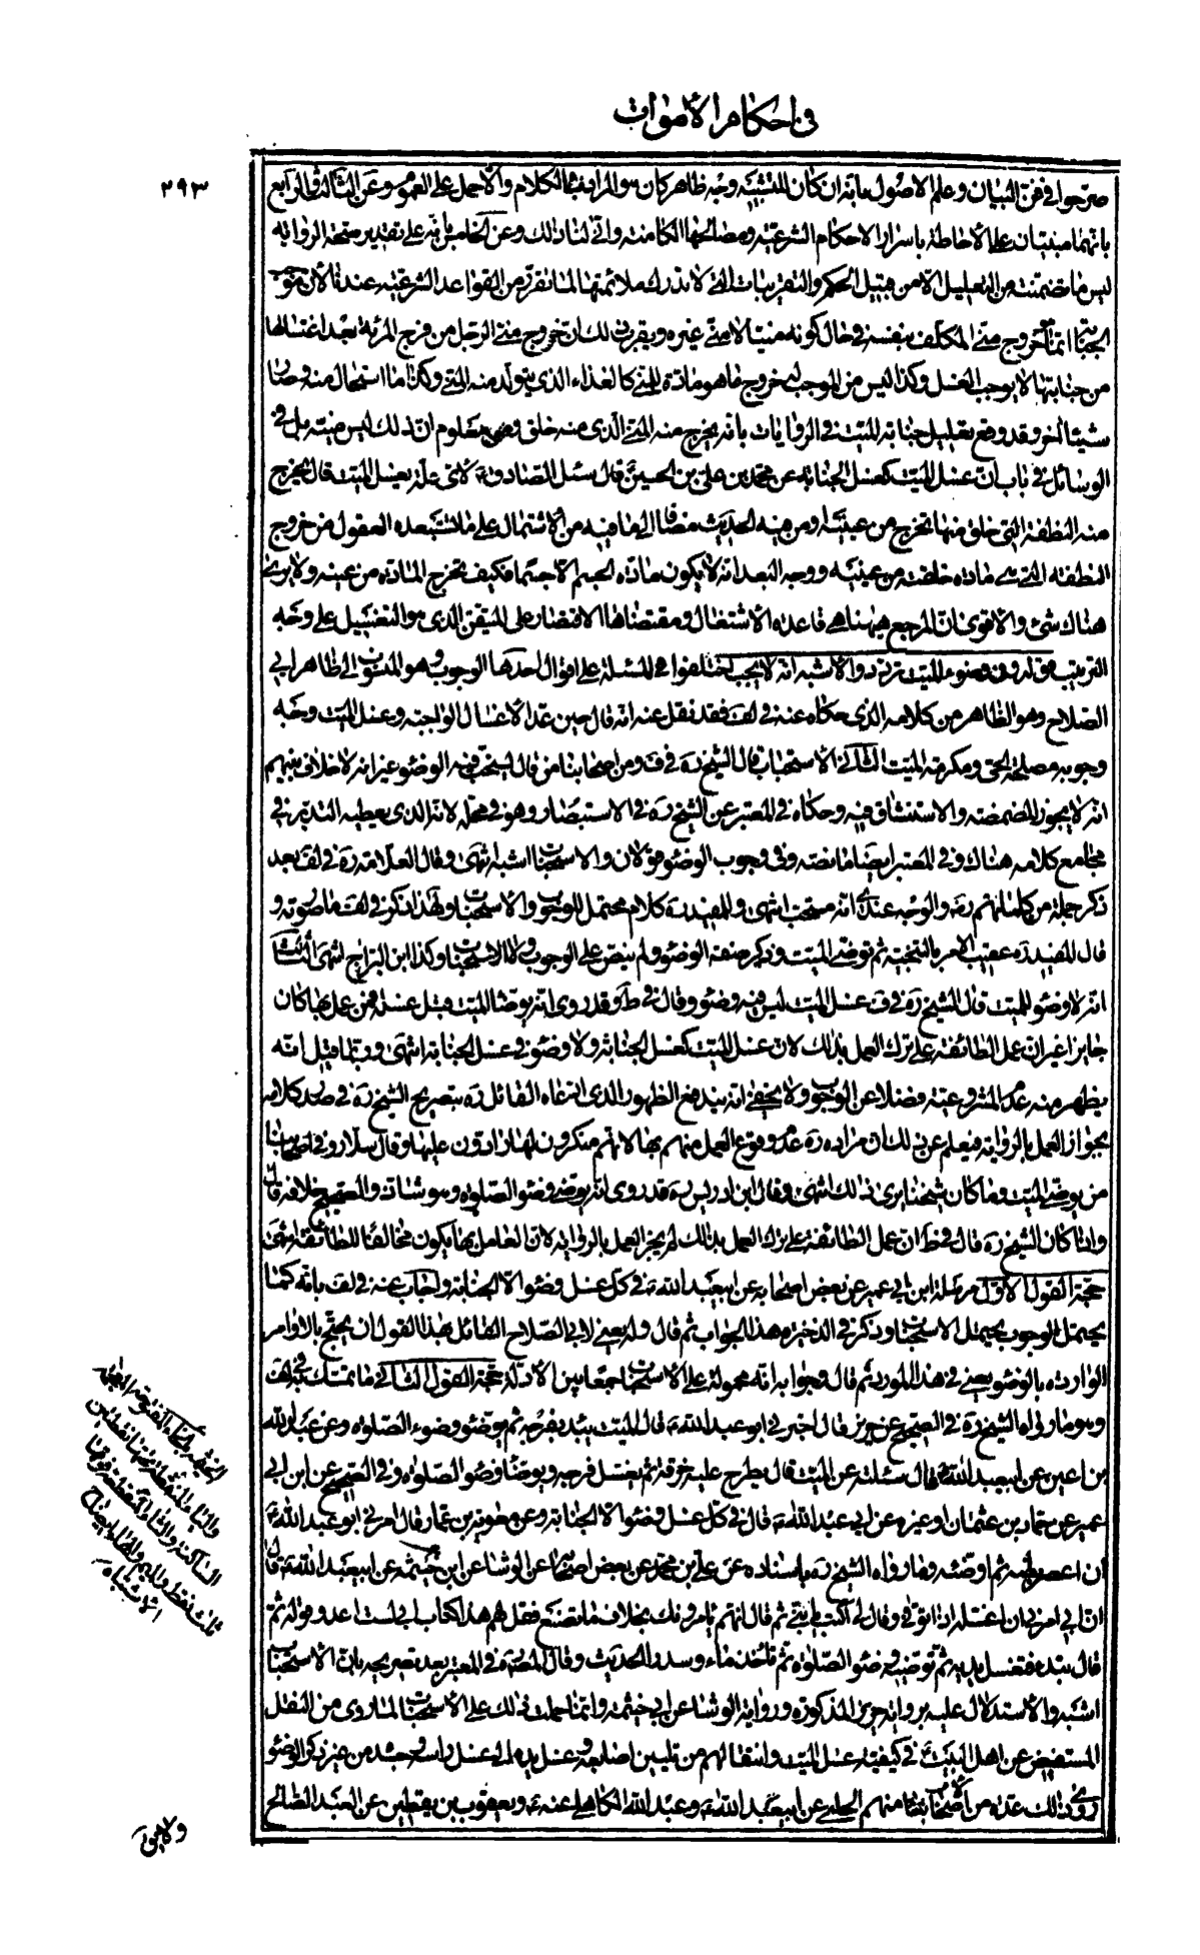 في احكام الأموات
٢٩٣
صرّحوا في فنّ البيان وعلم الاصول بانه ان كان للتشبيه وجه ظاهر كان هو المراد بالكلام والا حمل على العموم وعن الثالث والرابع
بانهما مبنيتان على الأحاطة باسرار الاحكام الشرعيّة ومصالحها الكامنة وانّى لنا ذلك وعن الخامس بانه على تقدير صحة الرواية
ليس ما تضمنته من التعليل الا من قبيل الحكم والتقريبات التي لا ندرك ملائمتها لما تقرّر من القواعد الشرعيّة عندنا لأن موجب
الجنابة انّما خروج منّى المكلّف بنفسه في حال كونه منيّا لا منّى غيره ويقرب ذلك ان خروج منّى الرّجل من فرج المرئة بعد اغتسالها
من جنابتها لا يوجب الغسل وكذا ليس من الموجب له خروج ما هو مادّة للمنّى كالغذاء الذي يتولّد منه المنّى وكذا ما استحال منه وصار
شيئا اخر وقد وقع تعليل جنابة الميّت في الروايات بانه يخرج منه المنّى الّذى منه خلق ومعلوم ان ذلك ليس منيّه بل في
الوسائل في باب ان غسل الميّت كغسل الجنابة عن محمّد بن على بن الحسين قال سئل الصّادق ع لأى علّة يغسل الميّت قال يخرج
منه النّطفة التي خلق منها تخرج من عينيه او من فيه الحديث مضافا الى ما فيه من الاشتمال على ما تستبعده العقول من خروج
النطفة التي هي مادّة خلقته من عينيه ووجه البعد انّه لا يكون مادّة الجسم الا جسما فكيف تخرج المادّة من عينه ولا يرى
هناك شئ والأقوى انّ المرجع هيهنا هي قاعدة الاشتغال ومقتضاها الاقتصار على المتيقّن الّذى هو التغسيل على وجه
الترتيب قوله وفى وضوء الميّت تردّد والاشبه انّه لا يجب اختلفوا في المسئلة على اقوال احدها الوجوب وهو المنسوب الى ظاهر ابى
الصّلاح وهو الظّاهر من كلامه الذى حكاه عنه في لف فقد نقل عنه انّه قال حين عدّ الأغسال الواجبة وغسل الميّت وجه
وجوبه مصلحة الحىّ ومكرمة الميّت الثّانى الاستحباب قال الشيخ ره في ف ومن اصحابنا من قال يستحبّ فيه الوضوء غير انه لا خلاف بينهم
انّه لا يجوز المضمضة والاستنشاق فيه وحكاه في المعتبر عن الشيخ ره في الاستبصار وهو في محلّه لانّ الذى يعطيه التدبّر في
مجامع كلامه هناك وفى المعتبر ايضا ما نصّه وفى وجوب الوضوء قولان والاستحباب اشبه انتهى وقال العلّامة ره في لف بعد
ذكر جملة من كلماتهم ره والوجه عندى انّه مستحبّ انتهى وللمفيد ره كلام محتمل للوجوب والاستحباب ولهذا ذكر في لف ما صورته و
قال المفيد ره عقيب الامر بالتنجية ثم توضّى الميّت وذكر صفة الوضوء ولم ينصّ على الوجوب ولا الاستحباب وكذا ابن البرّاج انتهى الثالث
انّه لا وضوء للميّت قال الشيخ ره في ف غسل الميّت ليس فيه وضوء وقال في ط وقد روى انّه يوضّأ الميّت قبل غسله فمن عمل بها كان
جايزا غير ان عمل الطّائفة على ترك العمل بذلك لان غسل الميّت كغسل الجنابة ولا وضوء في غسل الجنابة انتهى وربّما قيل انّه
يظهر منه عدم المشروعيّة فضلا عن الوجوب ولا يخفى انّه يندفع الظهور الّذى ادّعاه القائل ره بتصريح الشيخ ره في صدر كلامه
بجواز العمل بالرّواية فيعلم عن ذلك ان مراده ره عدم وقوع العمل منهم بها لا انهم منكرون لها رادّون عليها وقال سلّار وفى اصحابنا
من يوضّى الميّت وما كان شيخنا يرى ذلك انتهى وقال ابن ادريس ره قد روى انّه يوضّى وضوء الصّلوة وهو شاذّ والصّحيح خلافه قال
واذا كان الشيخ ره قال في ط ان عمل الطّائفة على ترك العمل بذلك لم يجز العمل بالرّواية لانّ العامل بها يكون مخالفا للطّائفة انتهى
حجّة القول الأوّل مرسلة ابن ابي عمير عن بعض اصحابه عن ابيعبد الله ع في كلّ غسل وضوء الّا الجنابة واجاب عنه في لف بانّه كما
يحتمل الوجوب يحتمل الاستحباب وذكر في الذخيرة هذا الجواب ثم قال وله يعنى لابى الصّلاح القائل بهذا القول ان يحتجّ بالاوامر
الواردة بالوضوء يعنى في هذا المورد ثم قال وجوابه انّه محمولة على الاستحباب جمعا بين الأدلّة حجّة القول الثّانى ما تمسّك به في لف
وهو ما رواه الشيخ ره في الصّحيح عن حريز قال اخبرنى ابو عبد الله ع قال الميّت يبدء بفرجه ثم يوضّئ وضوء الصّلوة وعن عبد الله
بن اعين عن ابيعبد الله ع قال سئلته عن الميّت قال يطرح عليه خرقة ثم يغسل فرجه ويوضّأ وضوء الصّلوة وفى الصّحيح عن ابن ابي
عمير عن حمّاد بن عثمان او غيره عن ابى عبد الله ع قال في كلّ غسل وضوء الّا الجنابة وعن معوية بن عمّار قال امرنى ابو عبد الله ع
ان اعصر بطنه ثم اوضّئه وما رواه الشيخ ره باسناده عن علىّ بن محمّد عن بعض اصحابنا عن الوشّا عن ابن خيثمة عن ابيعبد الله ع قال
انّ ابى امرنى ان اغسله اذا توفّى وقال لى اكتب يا بنىّ ثم قال انهم يأمرونك بخلاف ما تصنع فقل لهم هذا كتاب ابى ولست اعدو قوله ثم
قال تبدء فتغسل يديه ثم توضّيه وضوء الصّلوة ثم تأخذ ماء وسدر الحديث وقال المصنّف ره في المعتبر بعد تصريحه بانّ الاستحباب
اشبه والأستدلال عليه برواية حريز المذكورة ورواية الوشّا عن ابى خيثمة وانّما حملت ذلك على الأستحباب لما روى من النقل
المستفيض عن اهل البيت ع في كيفيّة غسل الميّت وانتقالهم من تليين اصابعه وغسل يديه الى غسل راسه وجسده من غير ذكر الوضوء
روى ذلك عدّة من اصحابنا منهم الحلبى عن ابيعبد الله ع وعبد الله الكاهلى عنه ع ويعقوب بن يقطين عن العبد الصّالح
والياء المنقطة تحتها نقطتين
السّاكنة والثّاء المنقطة فوقها
ثلث نقط والميم والهاء ايضاح
الاشتباه
ولا يبقى